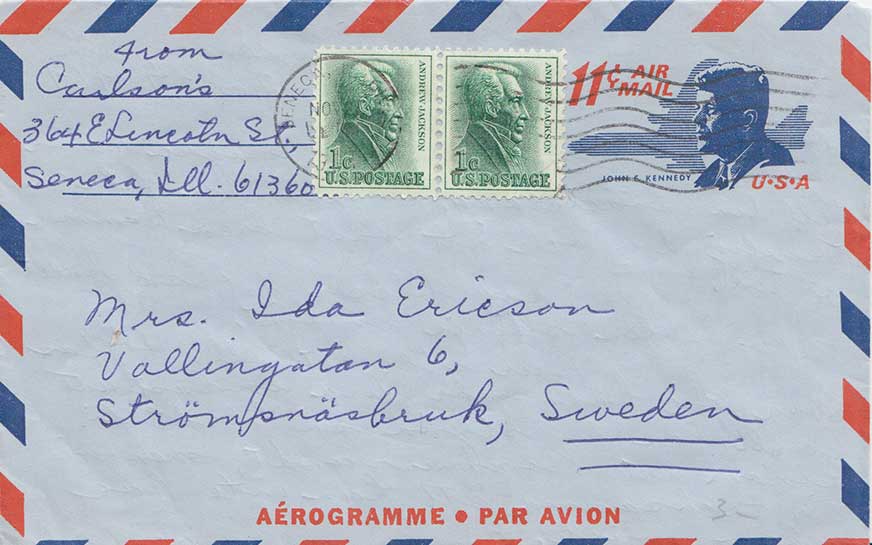 From
Carlson's
364 E Lincoln St.
Seneca, Ill. 61360
SENECA,
NO
ANDREW JACKSON
1c
U.S. POSTAGE
ANDREW JACKSON
1c
U.S. POSTAGE
11¢ AIR
MAIL
JOHN F. KENNEDY
U·S·A
Mrs. Ida Ericson
Vallingatan 6,
Strömsnäsbruk, Sweden
AÉROGRAMME • PAR AVION
3-